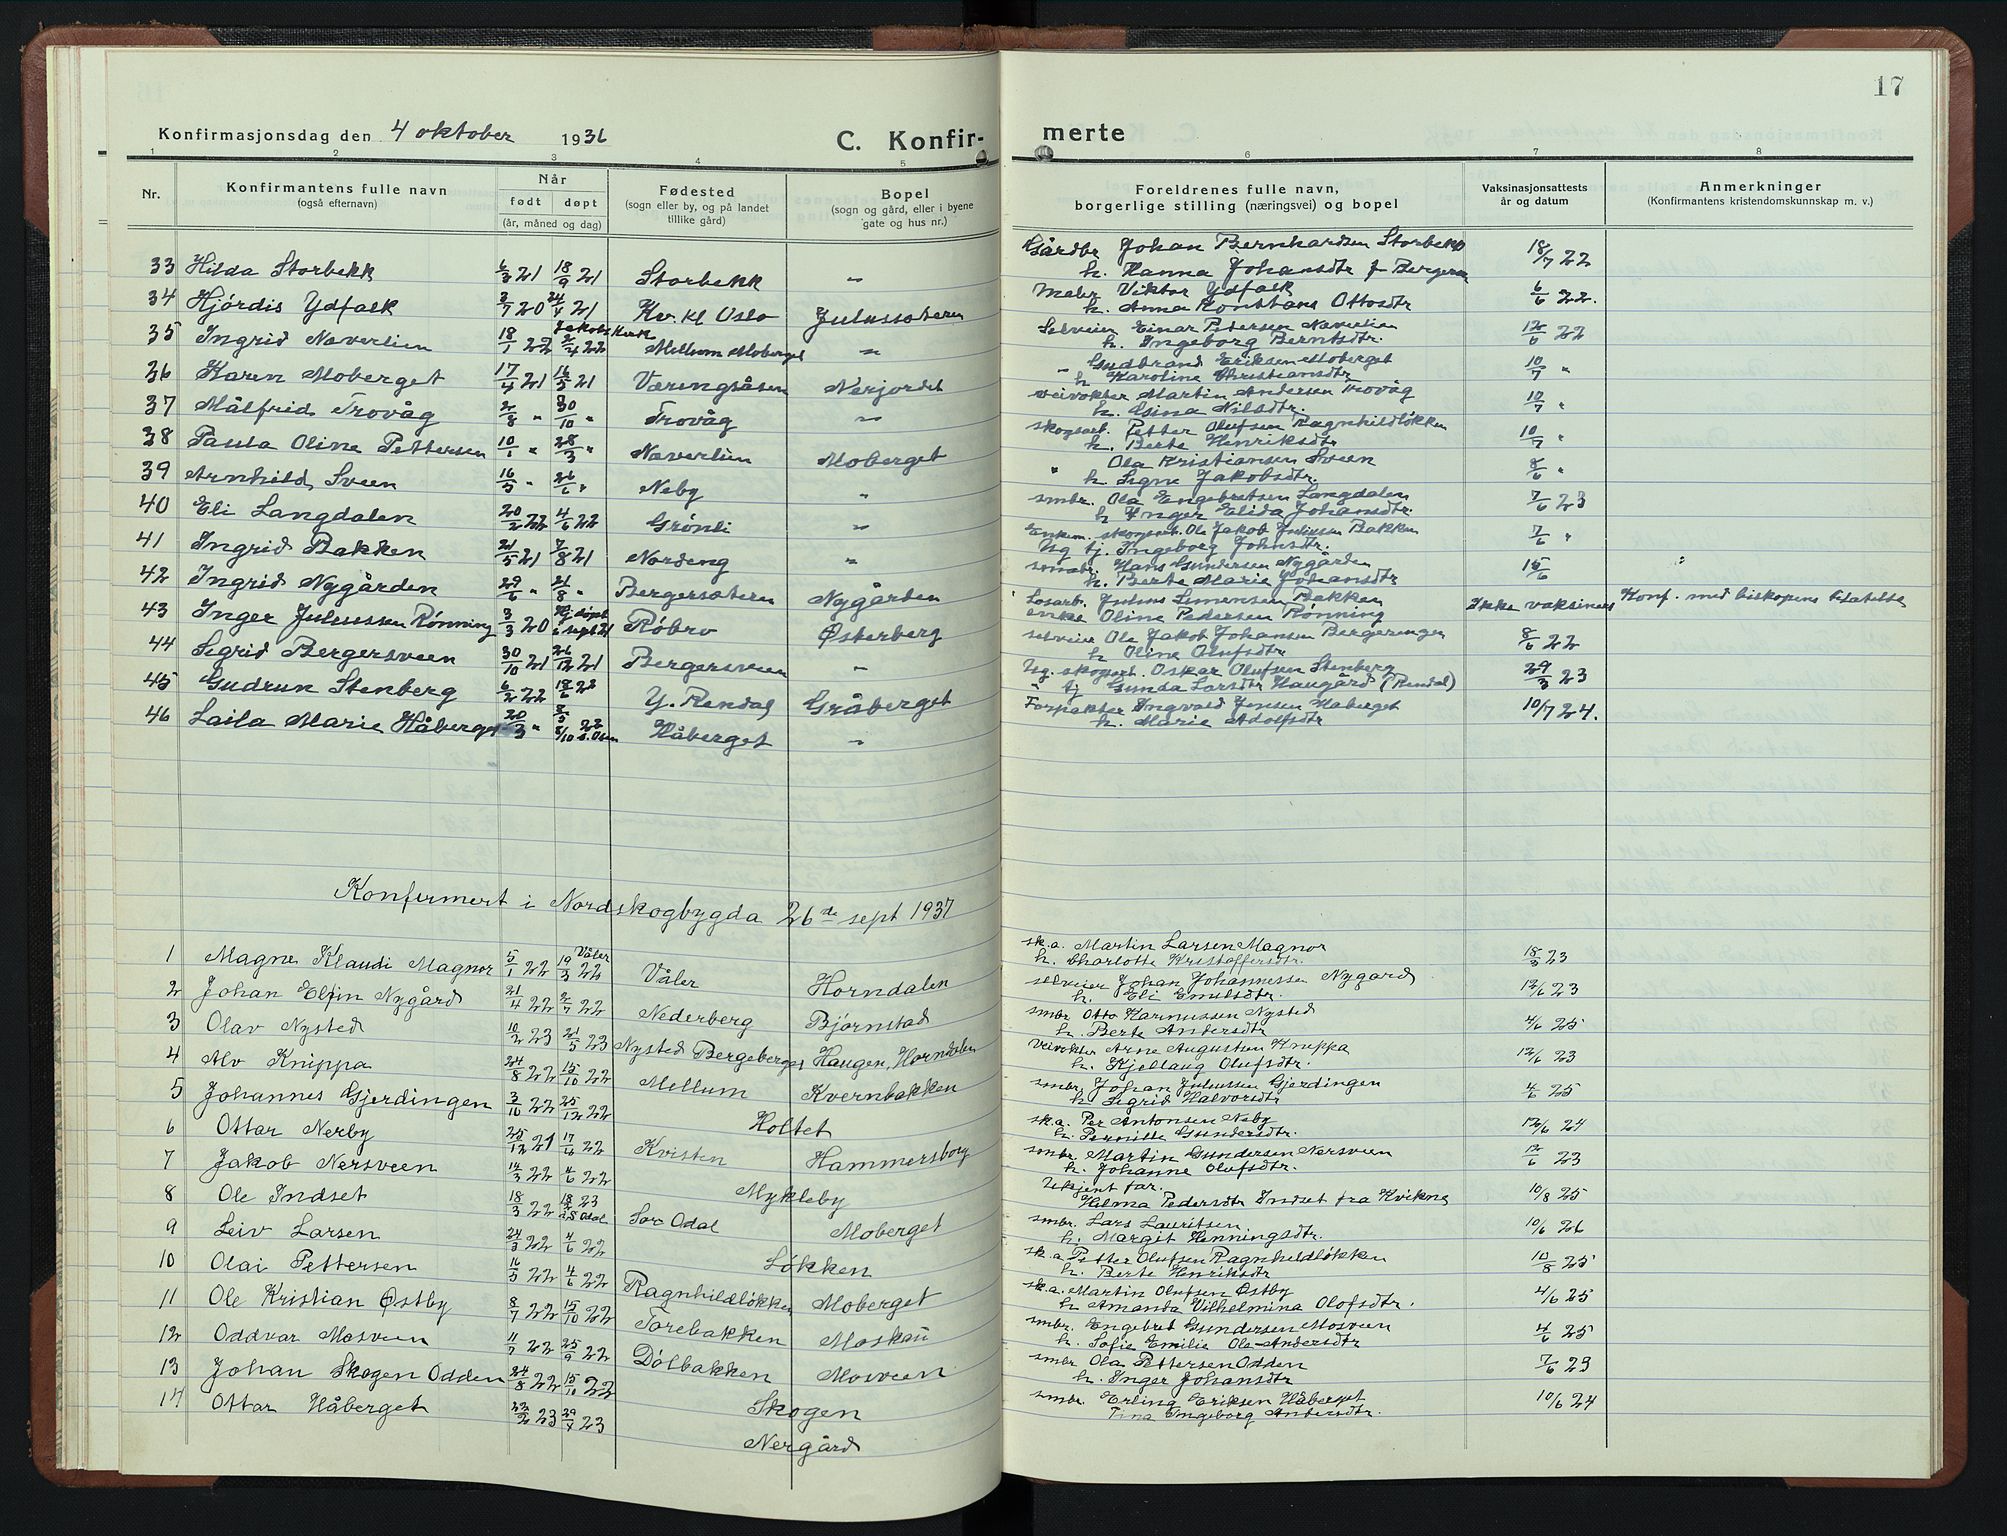 17
Konfirmasjonsdag den 4 oktober 1936
C. Konfir- merte
1 2 3 4 5 6 7 8
Nr.
Konfirmantens fulle navn
(også efternavn)
Når
født døpt
(år, måned og dag)
Fødested
(sogn eller by, og på landet
tillike gård)
Bopel
(sogn og gård, eller i byene
gate og hus nr.)
Foreldrenes fulle navn,
borgerlige stilling (næringsvei) og bopel
Vaksinasjonsattests
år og datum
Anmerkninger
(Konfirmantens kristendomskunnskap m. v.)
33 Hilda Storbekk 6/3 21 18/9 21 Storbekk " Gårdbr Johan Bernhardsen Storbekk 18/7 22
h. Hanna Johansdtr f Bergersen
34 Hjørdis Ydfalk 3/7 20 24/4 21 Kv. kl Oslo Julussæteren Maler Viktor Ydfalk 6/6 22.
Jakobs Kirk h. Anna Konstans Ottosdtr
35 Ingrid Næverlien 18/1 22 2/4 22 Mellum Moberget " Selveier Einar Petersen Næverlien 12/6 22
h. Ingeborg Berntsdtr.
36 Karen Moberget 17/4 21 16/5 21 Væringsåsen Nerjordet " Gudbrand Eriksen Moberget 10/7 "
h Karoline Christiansdtr
37 Målfrid Trovåg 2/8 " 30/10 " Trovåg " Veivokter Martin Andersen Trovåg 10/7 "
h. Gina Nilsdtr.
38 Paula Oline Pettersen 10/1 " 28/3 " Næverlien Moberget skogsarb. Petter Olufsen Ragnhildløkken 10/7 "
h. Berte Henriksdtr
39 Arnhild Sveen 16/5 " 26/6 " Neby " " Ola Kristiansen Sveen 8/6 "
h. Signe Jakobsdtr.
40 Eli Langdalen 20/2 22 4/6 22 Grønli " smbr. Ola Engebretsen Langdalen 7/6 23
h Inger Elida Johansdtr.
41 Ingrid Bakken 21/5 21 7/8 21 Nordeng " Enkem. skogsarb. Ole Jakob Juliussen Bakken 7/6 "
Ug tj. Ingeborg Johnsdtr.
42 Ingrid Nygården 29/6 " 21/8 " Bergersæteren Nygården smabr. Hans Gundersen Nygården 15/6 "
h. Berte Marie Johansdtr
43 Inger Juliussen Rønning 3/3 20 Hj.døpt i sept 21 Røbro Østerberg Løsarb. Julius Simensen Bakken Ikke vaksinert Konf. med biskopens tillatelse
enke Oline Pedersen Rønning
44 Sigrid Bergersveen 30/10 21 26/12 21 Bergersveen " selveier Ole Jakob Johansen Bergerengen 8/6 22
h Oline Olufsdtr
45 Gudrun Stenberg 6/2 22 18/6 22 Y. Rendal Gråberget Ug. skogsarb. Oskar Olufsen Stenberg 29/3 23
" tj Gunda Larsdtr Haugård (Rendal)
46 Laila Marie Håberget 20/3 " 5/10 22 i. Osen Håberget " Forpakter Ingvald Jensen Håberget 10/7 24.
h. Marie Adolfsdtr
Konfermert i Nordskogbygda 26de sept 1937
1 Magne Klaudi Magnor 5/1 22 19/3 22 Våler Våler Horndalen sk.a. Martin Larsen Magnor 18/3 23
h. Charlotte Kristoffersdtr.
2 Johan Elfin Nygård 21/4 22 2/7 22 Nederberg Bjørnstad selveier Johan Johannessen Nygård 12/6 23
h. Eli Emilsdtr.
3 Olav Nysted 10/2 23 21/5 23 Nysted Bergeberget Haugen, Horndalen smbr Otto Karinussen Nysted 4/6 25
h. Berte Andersdtr
4 Alv Knippa 24/8 22 15/10 22 Mellum Kvernbakken Veivokter Arne Augustsen Knippa 12/6 23
h. Kjellaug Olufsdtr.
5 Johannes Gjerdingen 3/10 22 25/12 22 Holtet smbr. Johan Juliussen Gjerdingen 4/6 25
h. Sigrid Halvorsdtr
6 Ottar Nerby 25/12 21 17/4 22 Kvisten Hammersborg sk.a. Per Antonsen Neby 12/6 24
h. Pernille Gundersdtr.
7 Jakob Nersveen 14/3 22 4/6 22 Mykleby smbr. Martin Gundersen Nersveen 12/6 23
h. Johanne Olufsdtr.
8 Ole Indset 18/3 22 18/2 23 i S. Odal Sør Odal Moberget Ukjent far. 10/8 25
Helma Pedersdtr Indset fra Kvikne
9 Leiv Larsen 24/3 22 4/6 22 Løkken smbr. Lars Lauritsen 10/6 26
h. Margit Henningsdtr.
10 Olai Pettersen 16/5 22 4/6 22 Ragnhildløkken Moberget sk.a. Petter Olufsen Ragnhildløkken 10/8 25
h. Berte Henriksdtr
11 Ole Kristian Østby 8/7 22 15/10 22 Torebakken Moskau sk.a. Martin Olufsen Østby 4/6 25
h Amanda Vilhelmina Olofsdtr.
12 Oddvar Mosveen 11/7 22 25/9 22 Dølbakken Mosveen smbr. Engebret Gundersen Mosveen 4/6 25
h. Sofie Emilie Ole-Andersdtr
13 Johan Skogen Odden 24/8 22 15/10 22 Skogen smbr Ola Pettersen Odden 7/6 23
h. Inger Johansdtr
14 Ottar Håberget 23/2 23 29/4 23 Nergård smbr. Erling Eriksen Håberget 10/6 24
Tina Ingeborg Andersdtr.